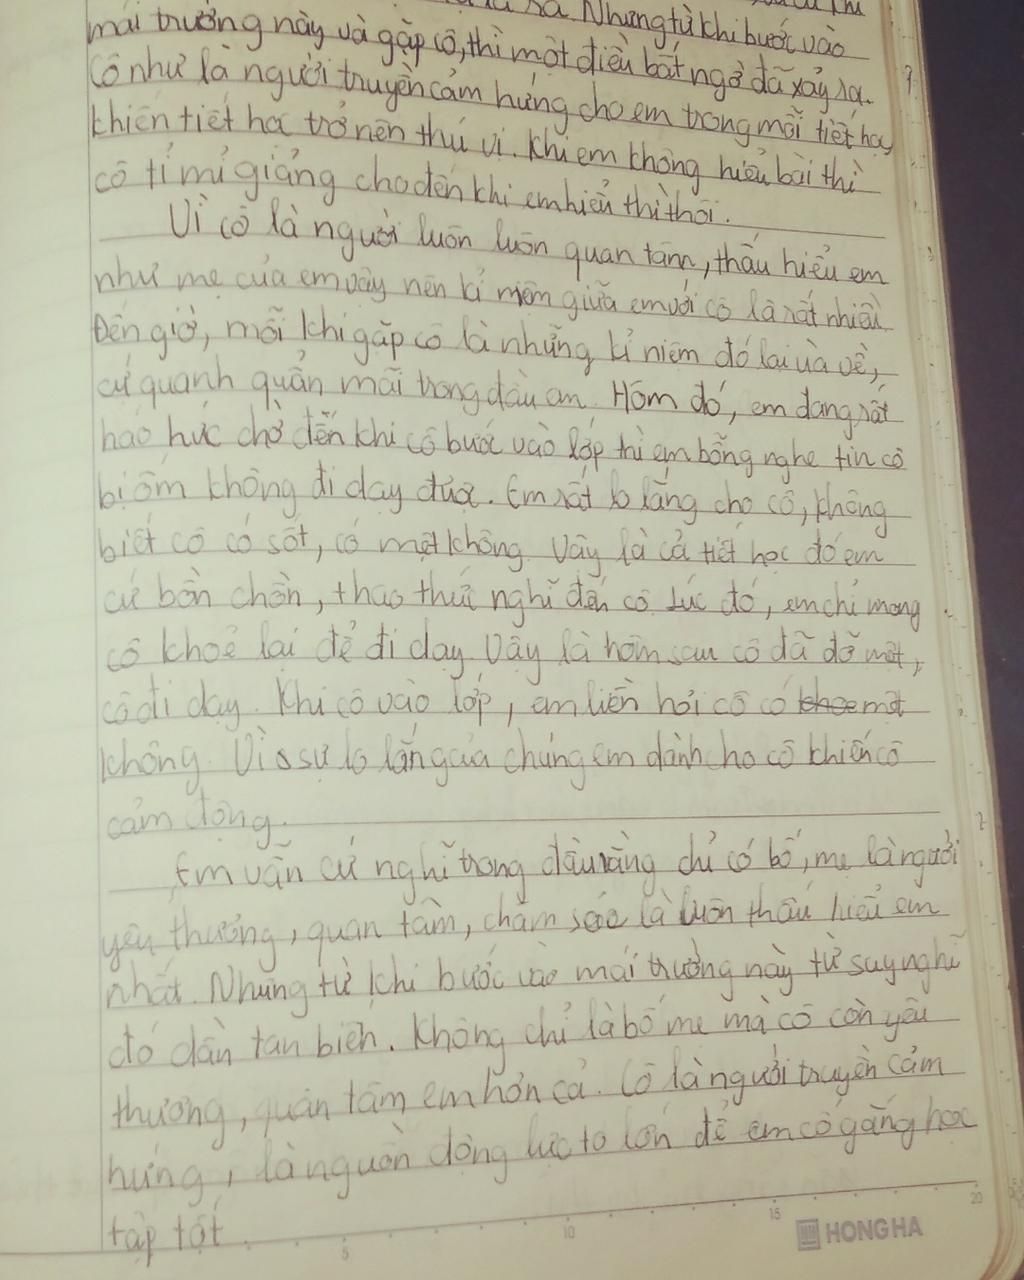 Nhưng từ khi bước vào
mái trường này và gặp cô, thì một điều bất ngờ đã xảy ra.
Cô như là người truyền cảm hứng cho em trong mỗi tiết học
khiến tiết học trở nên thú vị. Khi em không hiểu bài thì
cô tỉ mỉ giảng cho đến khi em hiểu thì thôi.
Vì cô là người luôn luôn quan tâm, thấu hiểu em
như mẹ của em vậy nên kỉ niệm giữa em với cô là rất nhiều.
Đến giờ, mỗi khi gặp cô là những kỉ niệm đó lại ùa về,
cứ quanh quẩn mãi trong đầu em. Hôm đó, em đang rất
háo hức chờ đến khi cô bước vào lớp thì em bỗng nghe tin cô
bị ốm không đi dạy được. Em rất lo lắng cho cô, không
biết cô có sốt, có mệt không. Vậy là cả tiết học đó em
cứ bồn chồn, thao thức nghĩ đến cô. Lúc đó, em chỉ mong
cô khoẻ lại để đi dạy. Vậy là hôm sau cô đã đỡ mệt,
cô đi dạy. Khi cô vào lớp, em liền hỏi cô có khoe mệt
không. Vì sự lo lắng của chúng em dành cho cô khiến cô
cảm động.
Em vẫn cứ nghĩ trong đầu rằng chỉ có bố, mẹ là người
yêu thương, quan tâm, chăm sóc là luôn thấu hiểu em
nhất. Nhưng từ khi bước vào mái trường này từ suy nghĩ
đó dần tan biến. Không chỉ là bố mẹ mà cô còn yêu
thương, quan tâm em hơn cả. Cô là người truyền cảm
hứng, là nguồn động lực to lớn để em cố gắng học
tập tốt.
5 10 15 20
HONG HA